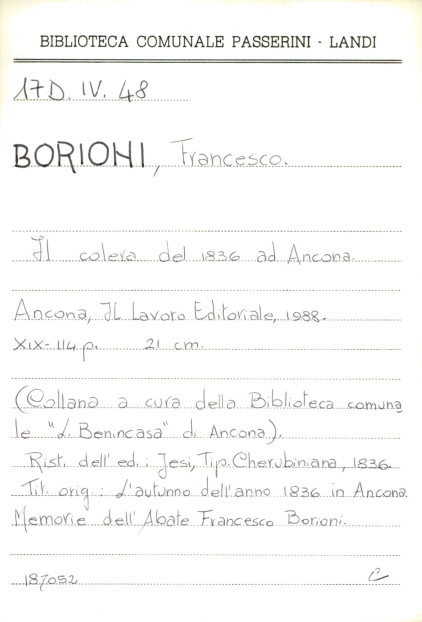 BIBLIOTECA COMUNALE PASSERINI - LANDI
17D. IV. 48
BORIONI, Francesco.
Il colera del 1836 ad Ancona.
Ancona, Il Lavoro Editoriale, 1988.
XIX-114 p. 21 cm.
(Collana a cura della Biblioteca comuna
le "L. Benincasa" di Ancona).
Rist. dell'ed.: Jesi, Tip. Cherubiniana, 1836.
Tit. orig.: L'autunno dell'anno 1836 in Ancona.
Memorie dell'Abate Francesco Borioni.
187052 C